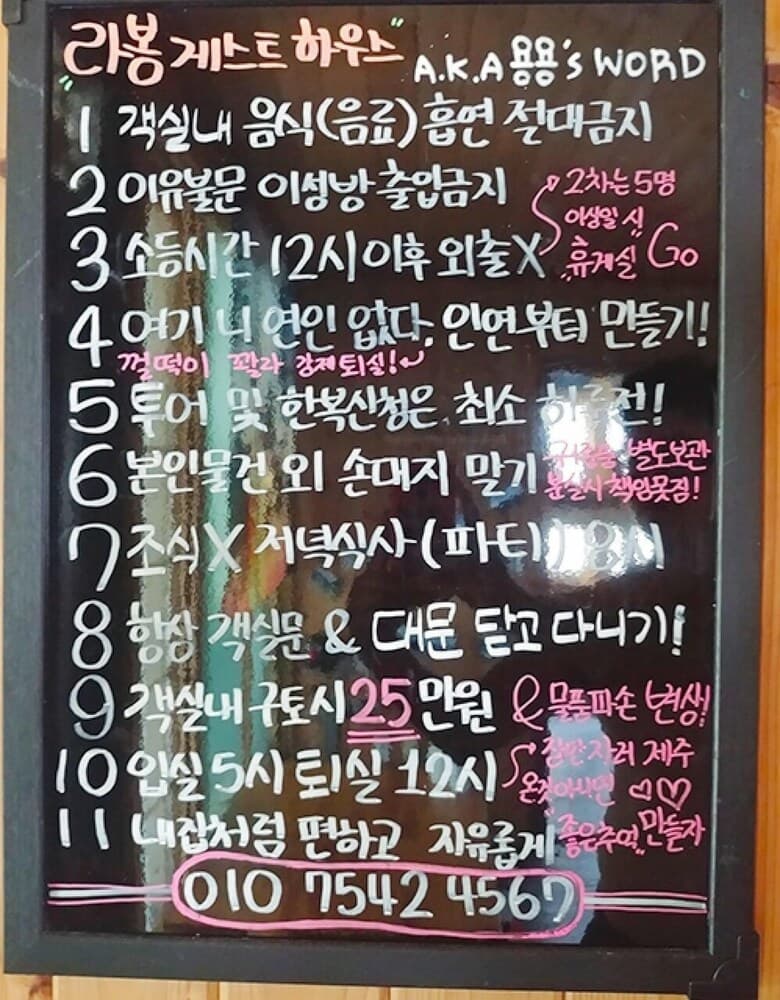 "라봉 게스트하우스" A.K.A 용용's WORD
1 객실내 음식(음료) 흡연 절대금지
2 이유불문 이성방 출입금지
2차는 5명
이상일 시
"휴게실 Go
3 소등시간 12시 이후 외출X
4 여기 니 연인 없다, 인연부터 만들기!
껄떡이 꽐라 강제퇴실!
5 투어 및 한복신청은 최소 하루전!
6 본인물건 외 손대지 말기
귀중품 별도보관
분실시 책임못짐!
7 조식X 저녁식사(파티) 8시
8 항상 객실문 & 대문 닫고 다니기!
9 객실내 구토시 25만원 & 물품파손 변상!
10 입실 5시 퇴실 12시
잠만자러 제주
온것아니면 ♡♡
11 내집처럼 편하고 자유롭게 "좋은추억" 만들자
010 7542 4567